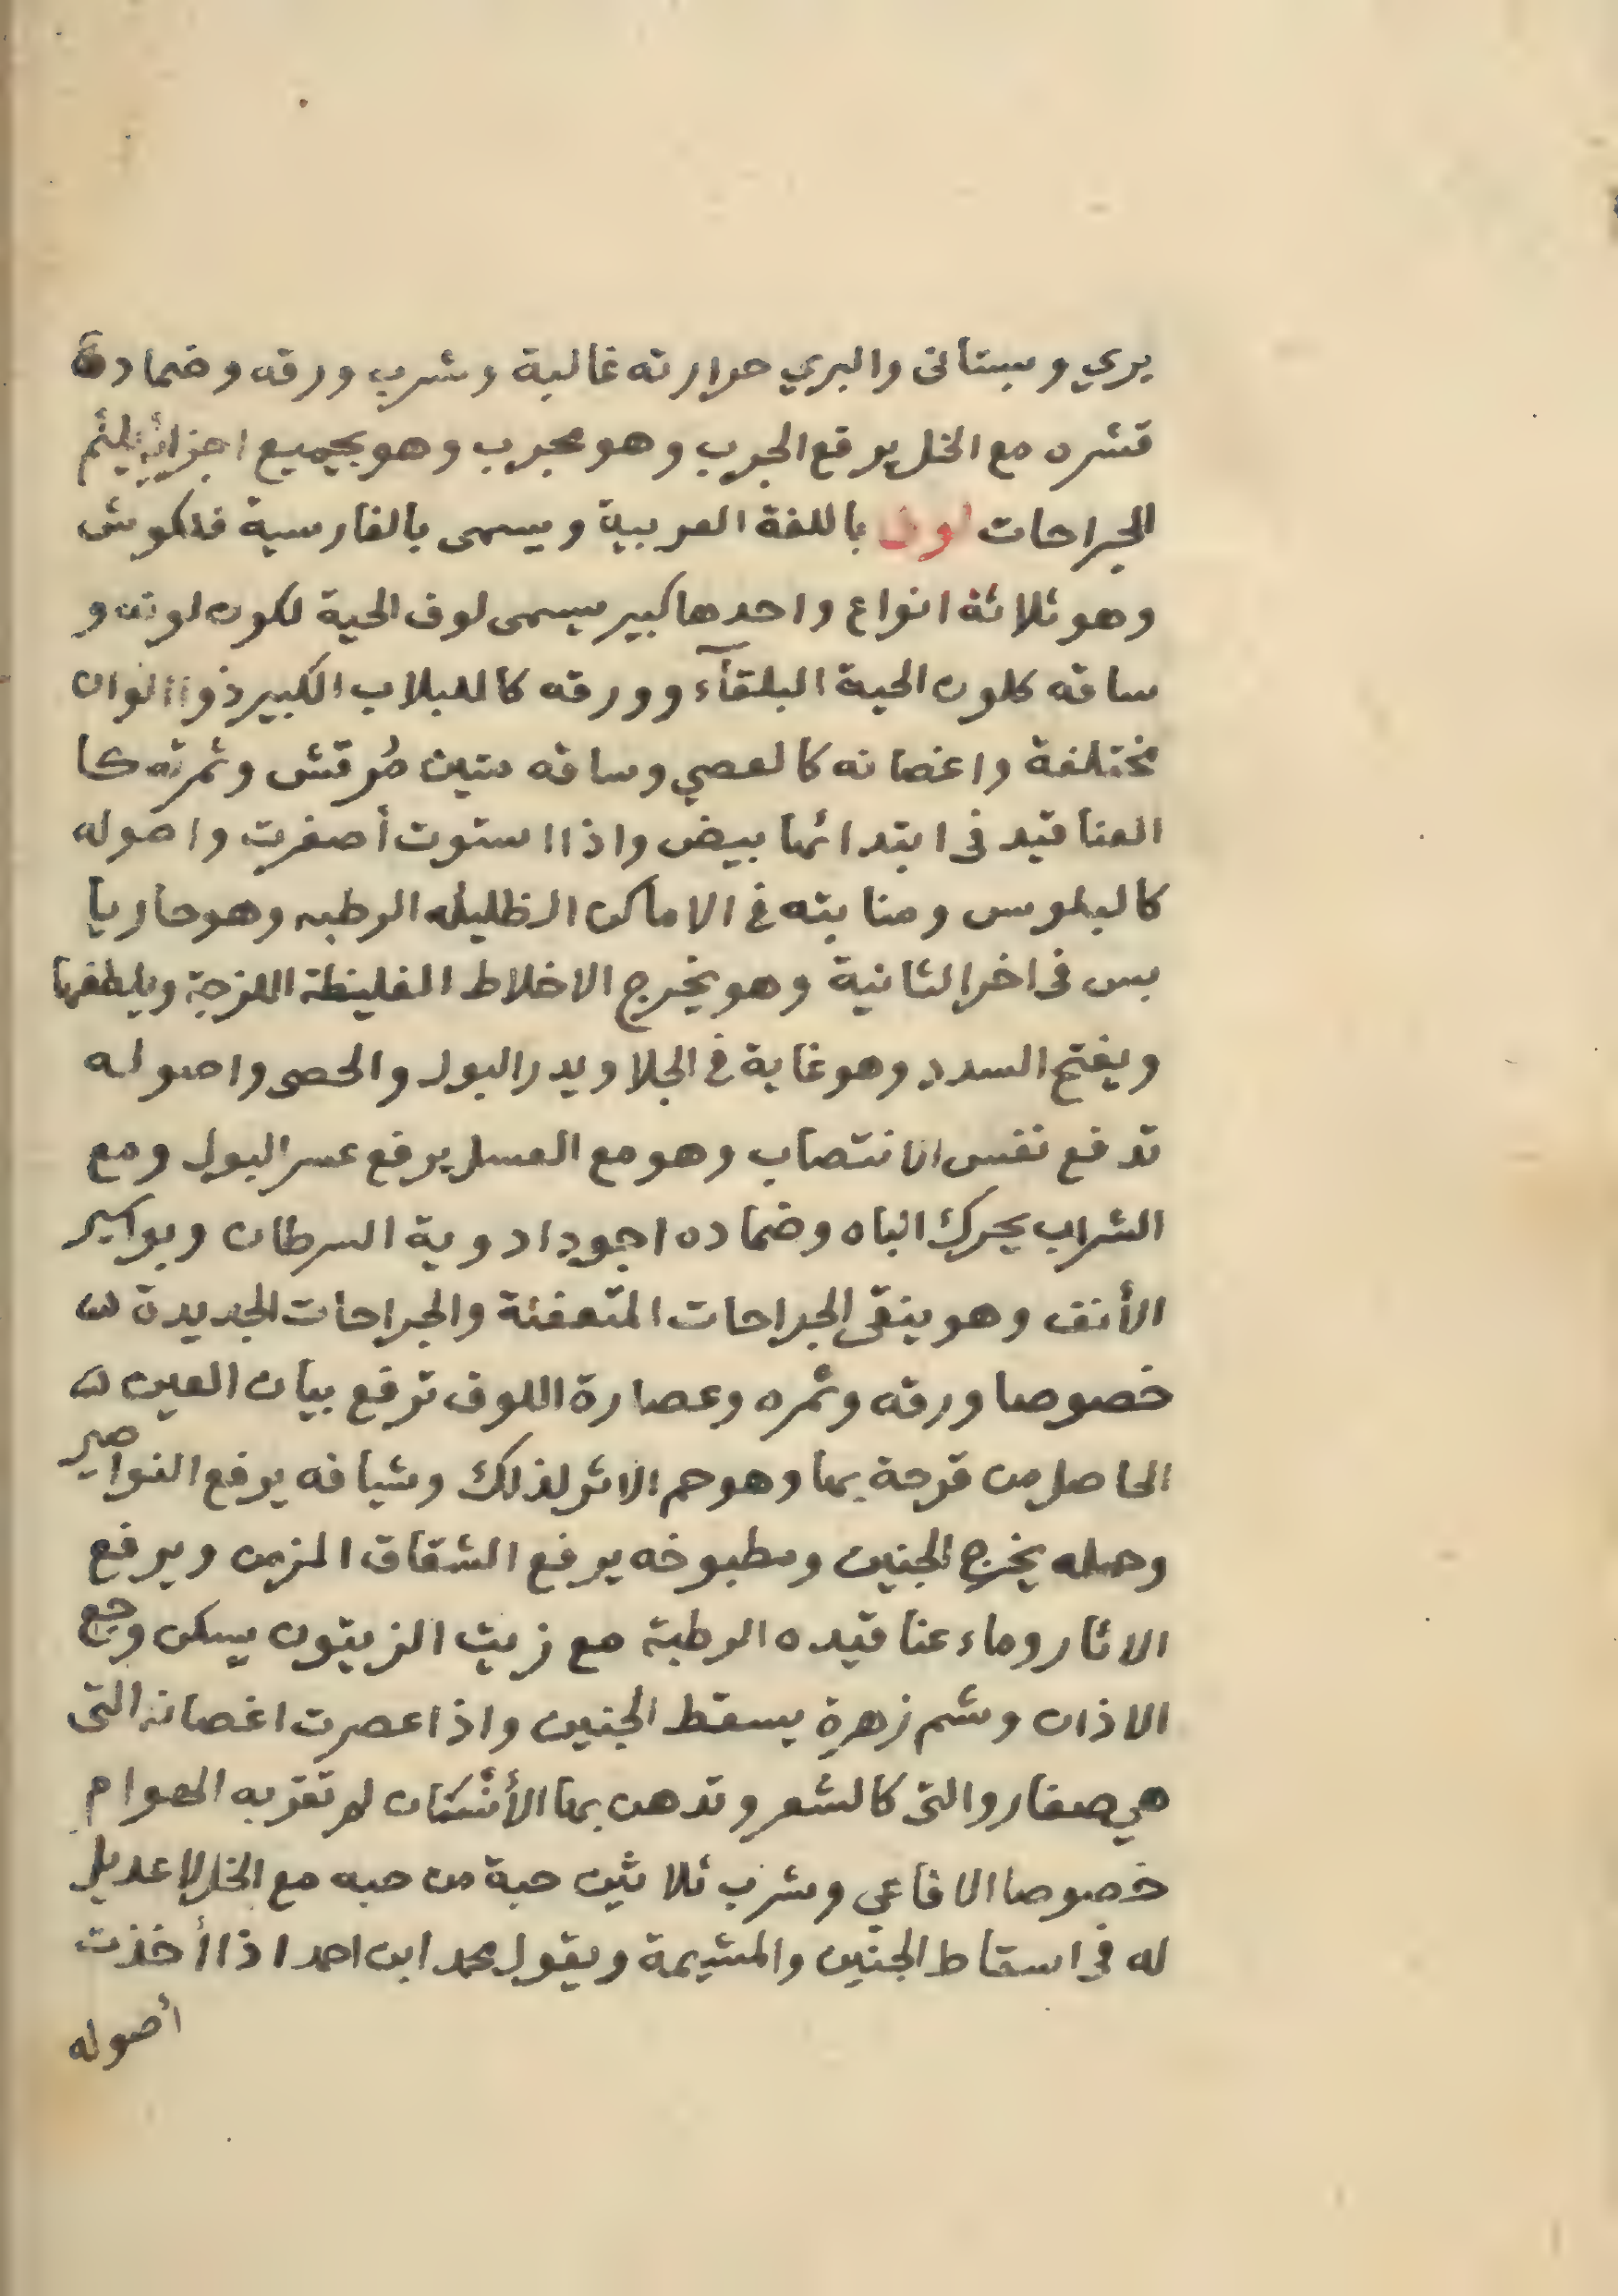 بري وبستانى والبري حرارته غالبة وشرب ورقه وضماده
قشره مع الخل يرفع الجرب وهو مجرب وهو بجميع اجزائه يلئم
الجراحات لوف باللغة العربية ويسمى بالفارسية فلكوش
وهو ثلاثة انواع واحدها كبير يسمى لوف الحية لكون لونه و
ساقه كلون الحية البلقآء وورقه كاللبلاب الكبير ذو االوان
مختلفة واغصانه كالعصي وساقه متين مُرقش وثمرته كا
العناقيد فى ابتدائها بيض واذا استوت أصفرت واصوله
كالبلبوس ومنابته فى الاماكن الظليله الرطبه وهو حار يا
بس فى اخر الثانية وهو يخرج الاخلاط الغليظة اللزجة ويلطفها
ويفتح السدد وهو غاية فى الجلا ويدر البول والحصى واصوله
تدفع نفس الانتصاب وهو مع العسل يرفع عسر البول ومع
الشراب يحرك الباه وضماده اجود ادوية السرطان وبواسير
الأنف وهو ينقى الجراحات المتعفنة والجراحات الجديدة
خصوصا ورقه وثمره وعصارة اللوف ترفع بيان العين
الحاصل من قرحة بها وهو حم الاثر لذلك وشيافه يرفع النواصير
وحمله يخرج الجنين ومطبوخه يرفع الشقاق المزمن ويرفع
الاثار وماء عناقيده الرطبة مع زيت الزيتون يسكن وجع
الاذان وشم زهرة يسقط الجنين واذا عصرت اغصانه التى
هي صغار والتى كالشعر وتدهن بها الأنسان لم تقربه الهوام
خصوصا الافاعي وشرب ثلاثين حبة من حبه مع الخل لا عديل
له فى اسقاط الجنين والمشيمة ويقول محمد ابن احمد اذا أخذت
أصوله